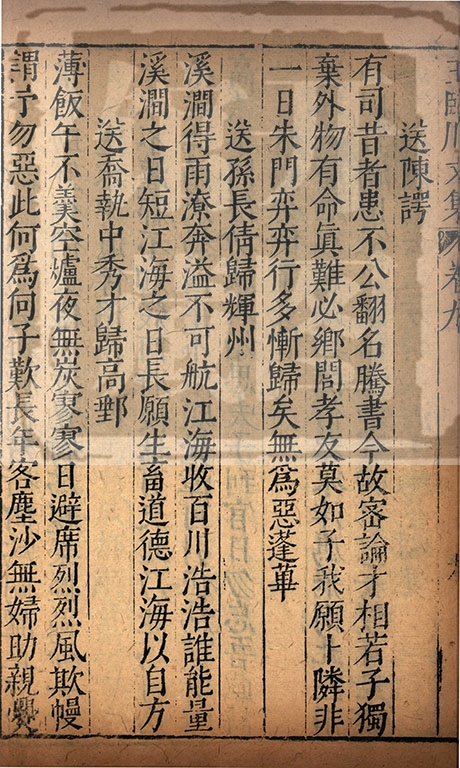 王臨川文集 卷九
送陳諤
有司昔者患不公翻名騰書今故密論才相若子獨
棄外物有命真難必鄉閭孝友莫如子我願卜隣非
一日朱門弈弈行多慚歸矣無爲惡蓬蓽
送孫長倩歸輝州
溪澗得雨潦奔溢不可航江海收百川浩浩誰能量
溪澗之日短江海之日長願生畜道德江海以自方
送喬執中秀才歸高郵
薄飯午不羹空爐夜無炭寥寥日避席烈烈風欺幔
謂予勿惡此何爲向子歎長年客塵沙無婦助親爨